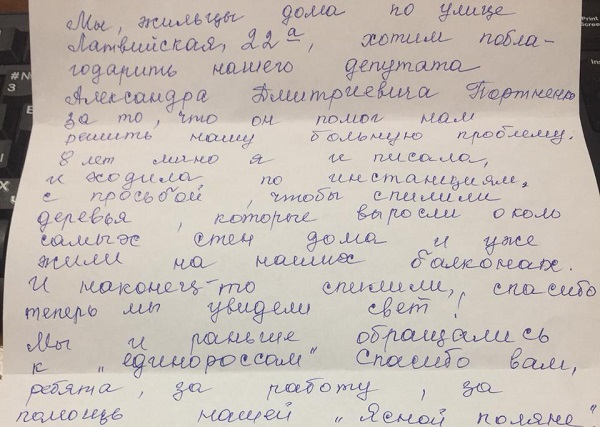 Мы, жильцы дома по улице
Латвийская, 22а, хотим побла-
годарить нашего депутата
Александра Дмитриевича Портненко
за то, что он помог нам
решить нашу больную проблему.
8 лет мино я и писала,
и ходила по инстанциям,
с просьбой, чтобы спилили
деревья, которые выросли около
самых стен дома и уже
жили на наших балконах.
И наконец-то спилили, спасибо
теперь мы увидели свет!
Мы и раньше обращались
к "единороссам" Спасибо вам,
ребята, за работу, за
помощь нашей "Ясной поляне".